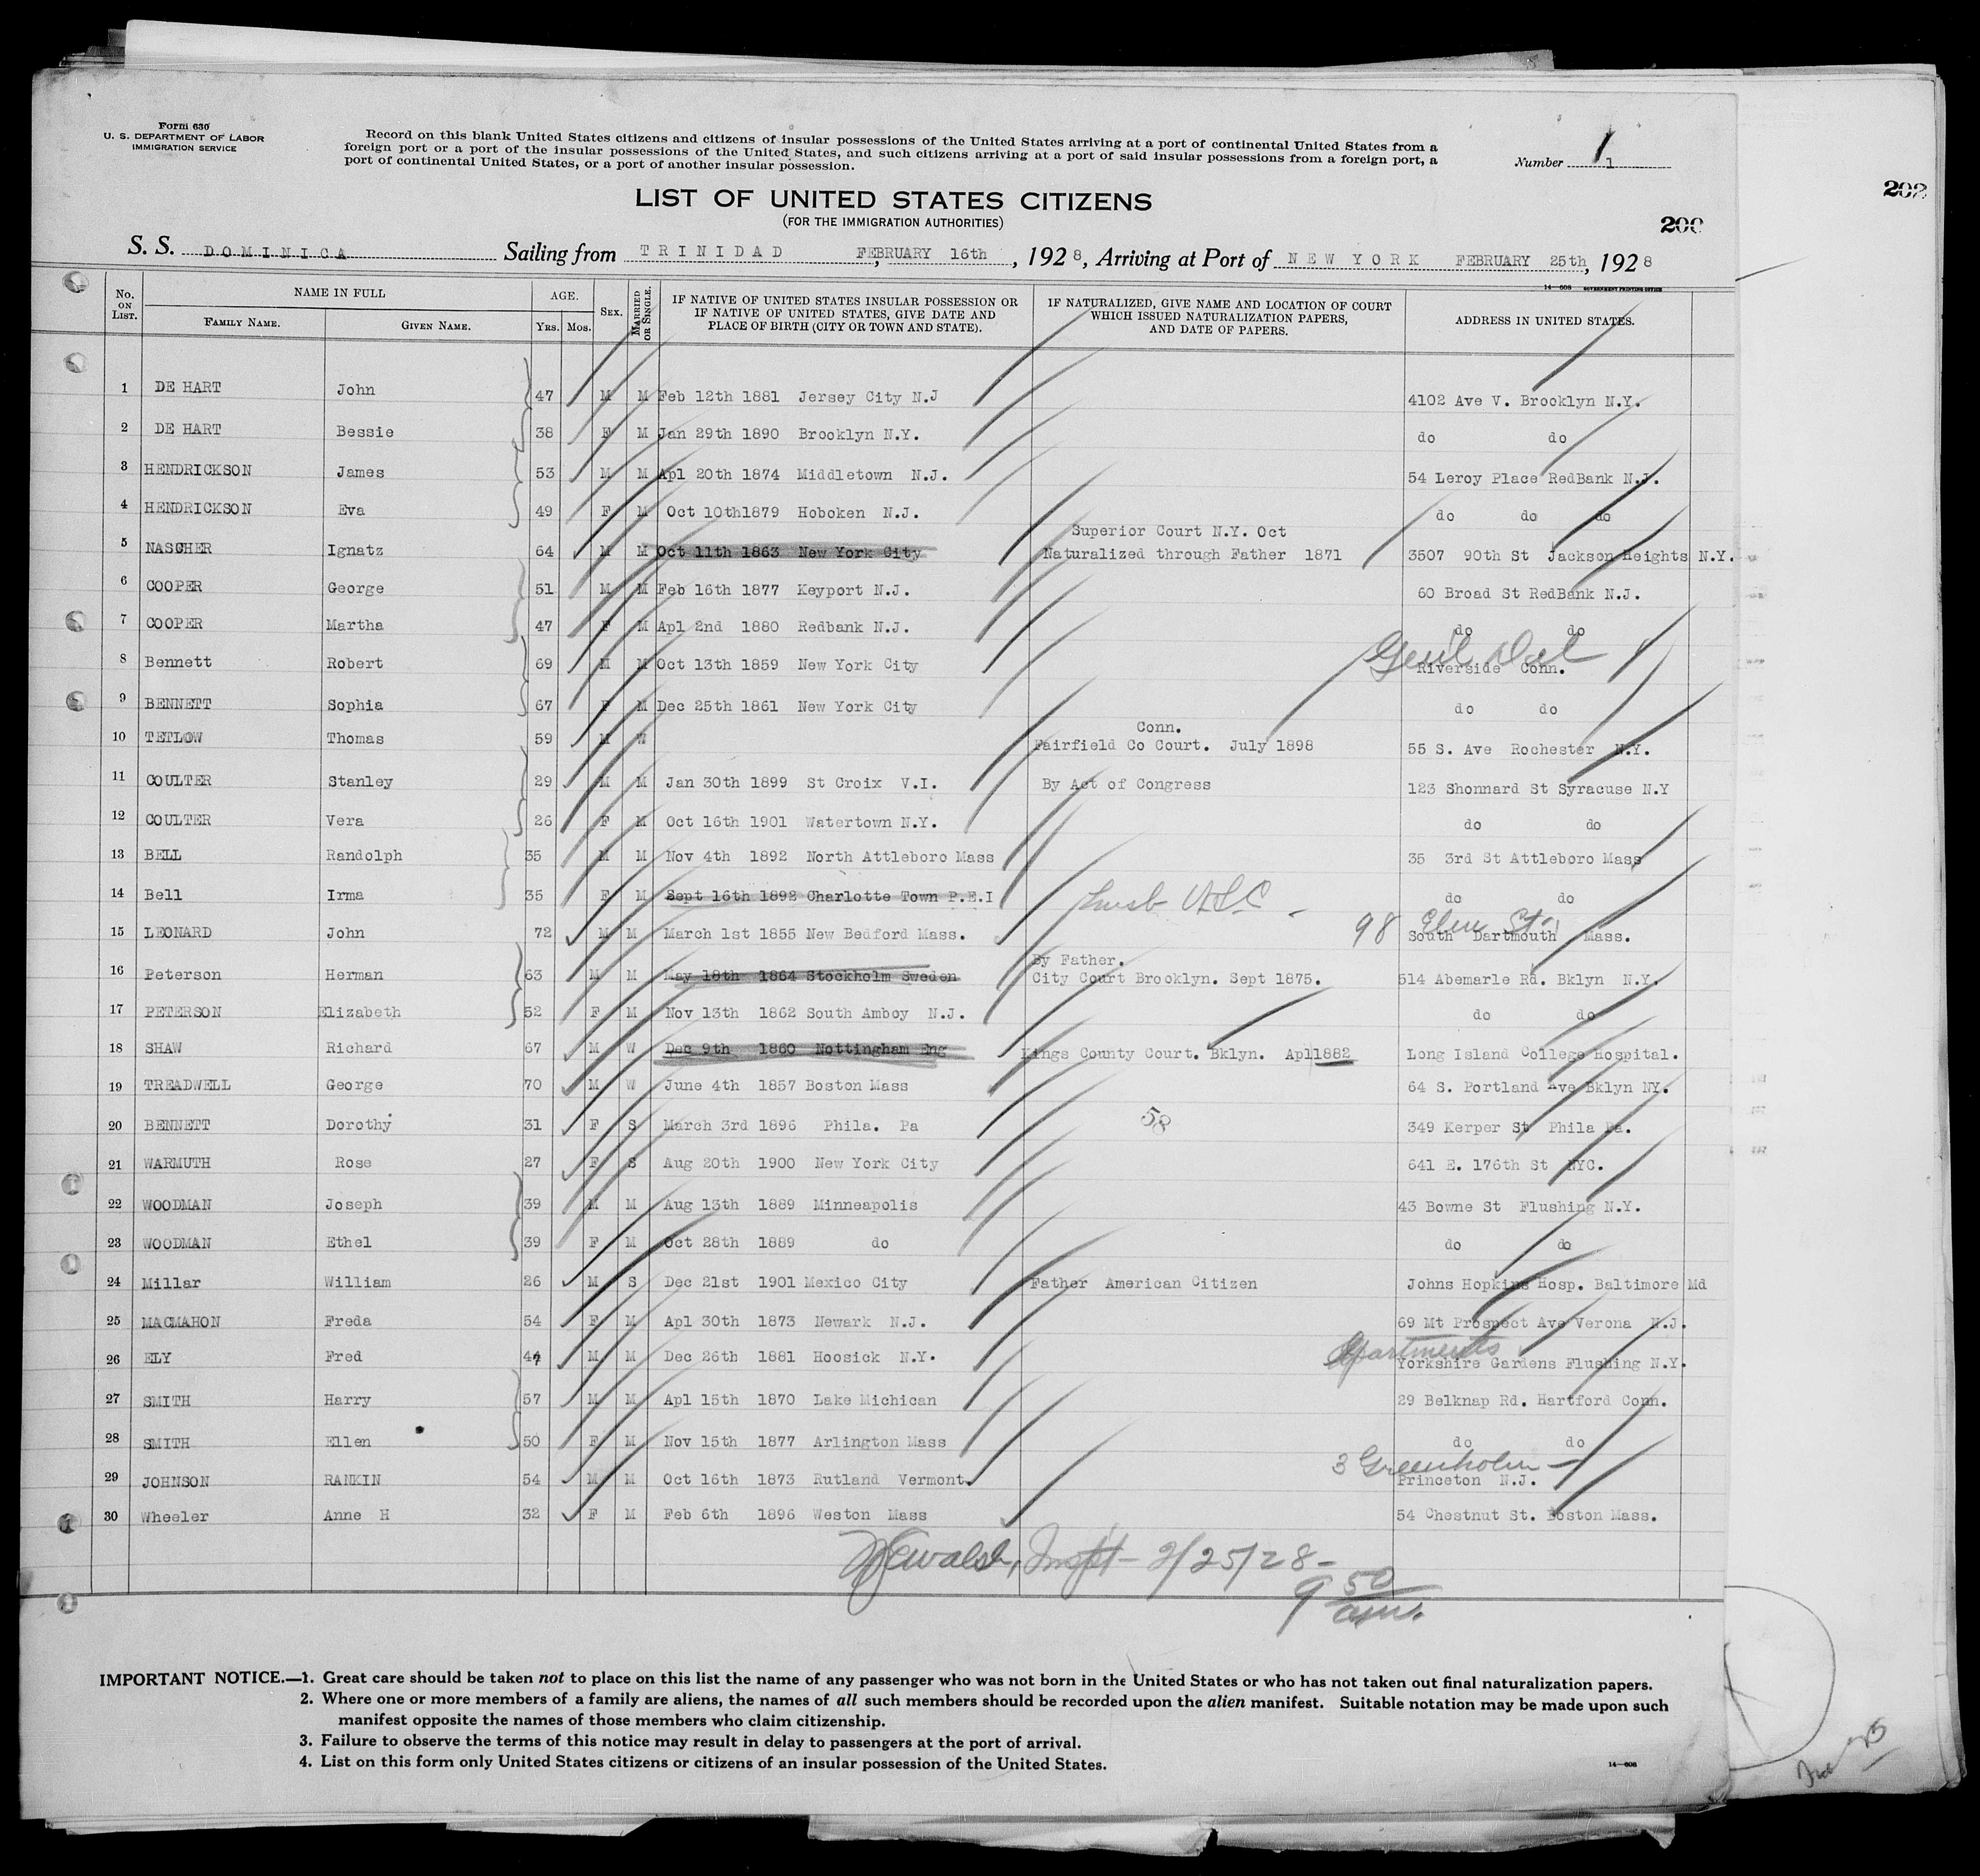 Form 630
U. S. DEPARTMENT OF LABOR
IMMIGRATION SERVICE
Record on this blank United States citizens and citizens of insular possessions of the United States arriving at a port of continental United States from a
foreign port or a port of the insular possessions of the United States, and such citizens arriving at a port of said insular possessions from a foreign port, a
port of continental United States, or a port of another insular possession.
Number 1
1
202
LIST OF UNITED STATES CITIZENS
(FOR THE IMMIGRATION AUTHORITIES)
200
S. S. DOMINICA Sailing from TRINIDAD FEBRUARY 16th, 1928, Arriving at Port of NEW YORK FEBRUARY 25th, 1928
14—608 GOVERNMENT PRINTING OFFICE
No. ON LIST. NAME IN FULL AGE. SEX. MARRIED OR SINGLE. IF NATIVE OF UNITED STATES INSULAR POSSESSION OR IF NATIVE OF UNITED STATES, GIVE DATE AND PLACE OF BIRTH (CITY OR TOWN AND STATE). IF NATURALIZED, GIVE NAME AND LOCATION OF COURT WHICH ISSUED NATURALIZATION PAPERS, AND DATE OF PAPERS. ADDRESS IN UNITED STATES.
FAMILY NAME. GIVEN NAME. YRS. MOS.
1 DE HART John 47 M M Feb 12th 1881 Jersey City N.J 4102 Ave V. Brooklyn N.Y.
2 DE HART Bessie 38 F M Jan 29th 1890 Brooklyn N.Y. do do
3 HENDRICKSON James 53 M M Apl 20th 1874 Middletown N.J. 54 Leroy Place RedBank N.J.
4 HENDRICKSON Eva 49 F M Oct 10th1879 Hoboken N.J. do do do
Superior Court N.Y. Oct
5 NASCHER Ignatz 64 M M Oct 11th 1863 New York City Naturalized through Father 1871 3507 90th St Jackson Heights N.Y.
6 COOPER George 51 M M Feb 16th 1877 Keyport N.J. 60 Broad St RedBank N.J.
7 COOPER Martha 47 F M Apl 2nd 1880 Redbank N.J. do do
Genl Del
8 Bennett Robert 69 M M Oct 13th 1859 New York City Riverside Conn.
9 BENNETT Sophia 67 F M Dec 25th 1861 New York City do do
Conn.
10 TETLOW Thomas 59 M W Fairfield Co Court. July 1898 55 S. Ave Rochester N.Y.
11 COULTER Stanley 29 M M Jan 30th 1899 St Croix V.I. By Act of Congress 123 Shonnard St Syracuse N.Y
12 COULTER Vera 26 F M Oct 16th 1901 Watertown N.Y. do do
13 BELL Randolph 35 M M Nov 4th 1892 North Attleboro Mass 35 3rd St Attleboro Mass
14 Bell Irma 35 F M Sept 16th 1892 Charlotte Town P.E.I do do
98 Elm St
15 LEONARD John 72 M M March 1st 1855 New Bedford Mass. South Dartmouth Mass.
By Father.
16 Peterson Herman 63 M M May 18th 1864 Stockholm Sweden City Court Brooklyn. Sept 1875. 514 Abemarle Rd. Bklyn N.Y.
17 PETERSON Elizabeth 52 F M Nov 13th 1862 South Amboy N.J. do do
18 SHAW Richard 67 M W Dec 9th 1860 Nottingham Eng Kings County Court. Bklyn. Apl1882 Long Island College Hospital.
19 TREADWELL George 70 M W June 4th 1857 Boston Mass 64 S. Portland Ave Bklyn NY.
20 BENNETT Dorothy 31 F S March 3rd 1896 Phila. Pa 58 349 Kerper St Phila Pa.
21 WARMUTH Rose 27 F S Aug 20th 1900 New York City 641 E. 176th St NYC.
22 WOODMAN Joseph 39 M M Aug 13th 1889 Minneapolis 43 Bowne St Flushing N.Y.
23 WOODMAN Ethel 39 F M Oct 28th 1889 do do do
24 Millar William 26 M S Dec 21st 1901 Mexico City Father American Citizen Johns Hopkins Hosp. Baltimore Md
25 MACMAHON Freda 54 F M Apl 30th 1873 Newark N.J. 69 Mt Prospect Ave Verona N.J.
Apartments
26 ELY Fred M M Dec 26th 1881 Hoosick N.Y. Yorkshire Gardens Flushing N.Y.
27 SMITH Harry 57 M M Apl 15th 1870 Lake Michican 29 Belknap Rd. Hartford Conn.
28 SMITH Ellen 50 F M Nov 15th 1877 Arlington Mass do do
3 Greenholm
29 JOHNSON RANKIN 54 M M Oct 16th 1873 Rutland Vermont. Princeton N.J.
30 Wheeler Anne H 32 F M Feb 6th 1896 Weston Mass 54 Chestnut St. Boston Mass.
Walsh, Inspt - 2/25/28 -
9 50 am.
IMPORTANT NOTICE.—1. Great care should be taken not to place on this list the name of any passenger who was not born in the United States or who has not taken out final naturalization papers.
2. Where one or more members of a family are aliens, the names of all such members should be recorded upon the alien manifest. Suitable notation may be made upon such
manifest opposite the names of those members who claim citizenship.
3. Failure to observe the terms of this notice may result in delay to passengers at the port of arrival.
4. List on this form only United States citizens or citizens of an insular possession of the United States.
14—608